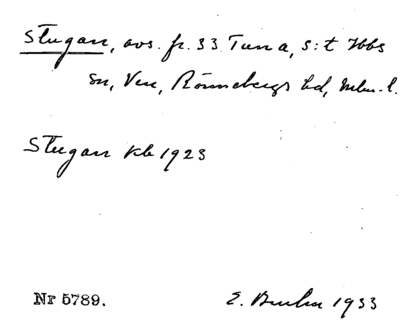 Stugan, avs. fr. 33 Tuna, S:t Ibbs
sn, Ven, Rönnebergs hd, Mlm. l.
Stugan Kb 1923
Nr 5789.
E. 1933